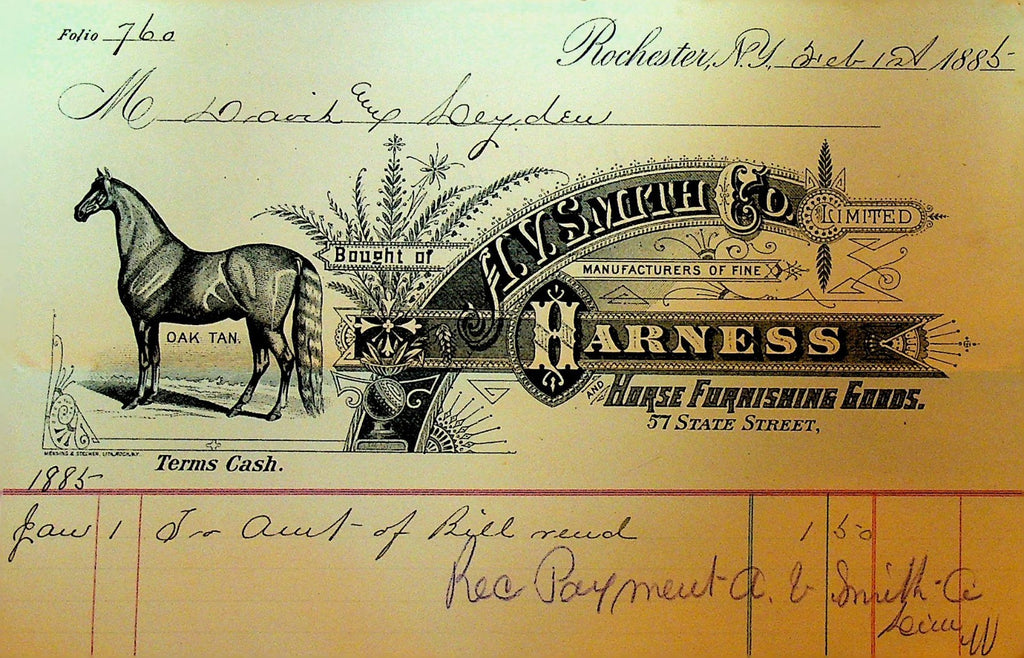 Folio 760
Rochester, N.Y. Feb 1st 1885
M David Leyden
Bought of
A.V. Smith & Co. Limited
Manufacturers of Fine
Harness
and Horse Furnishing Goods.
57 State Street,
Oak Tan.
Mensing & Stecher, Lith. Roch. N.Y.
Terms Cash.
1885
Jan 1 To Amt of Bill rend 1 50
Rec Payment A. V. Smith Co